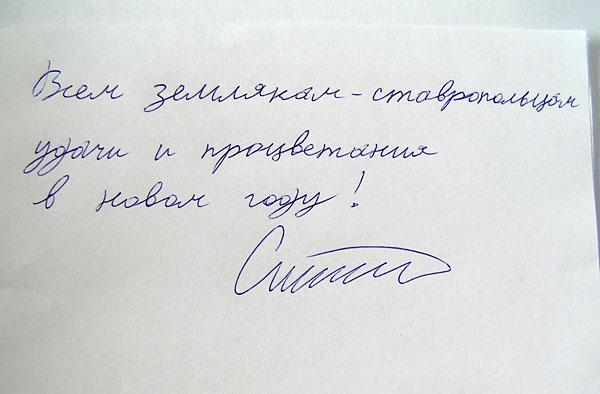 Всем землякам - ставропольцам
удачи и процветания
в новом году!